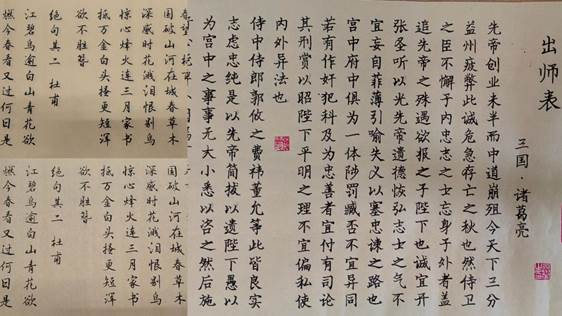 出师表
三国·诸葛亮
先帝创业未半而中道崩殂今天下三分
益州疲弊此诚危急存亡之秋也然侍卫
之臣不懈于内忠志之士忘身于外者盖
追先帝之殊遇欲报之于陛下也诚宜开
张圣听以光先帝遗德恢弘志士之气不
宜妄自菲薄引喻失义以塞忠谏之路也
宫中府中俱为一体陟罚臧否不宜异同
若有作奸犯科及为忠善者宜付有司论
其刑赏以昭陛下平明之理不宜偏私使
内外异法也
侍中侍郎郭攸之费祎董允等此皆良实
志虑忠纯是以先帝简拔以遗陛下愚以
为宫中之事事无大小悉以咨之然后施
春望
国破山河在城春草木
深感时花溅泪恨别鸟
惊心烽火连三月家书
抵万金白头搔更短浑
欲不胜簪
绝句其二 杜甫
江碧鸟逾白山青花欲
燃今春看又过何日是
国破山河在城春草木
深感时花溅泪恨别鸟
惊心烽火连三月家书
抵万金白头搔更短浑
欲不胜簪
绝句其二 杜甫
江碧鸟逾白山青花欲
燃今春看又过何日是